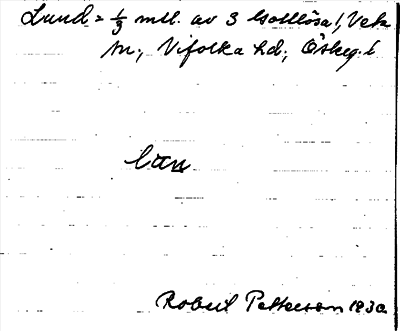 Lund = 1/3 mtl. av 3 Gottlösa, Veta
sn, Vifolka hd, Östkog. l
län
Robert Petterson 1930